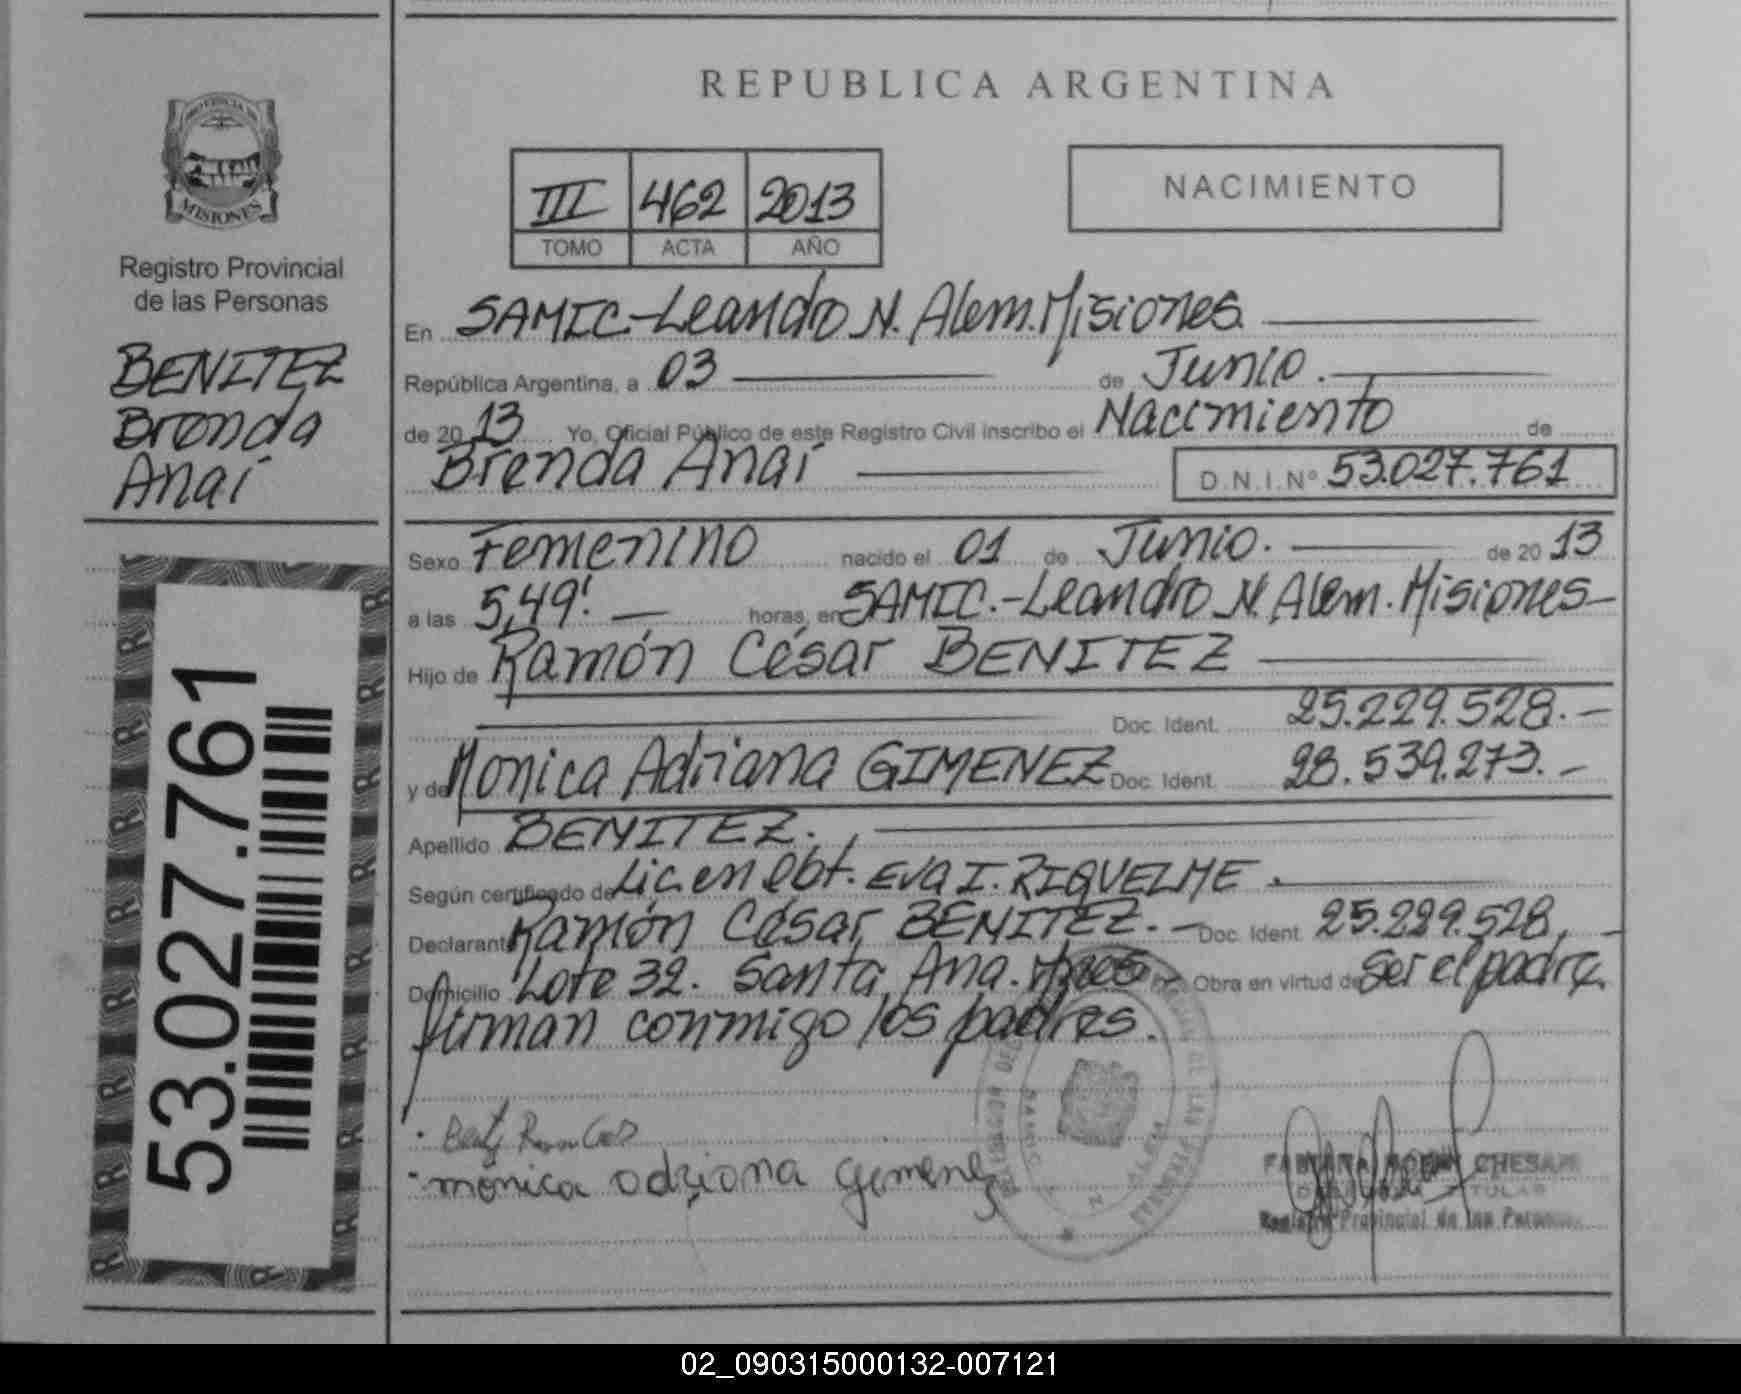 REPUBLICA ARGENTINA
PROVINCIA DE
MISIONES
Registro Provincial
de las Personas
BENITEZ
Brenda
Anaí
53.027.761
III 462 2013
TOMO ACTA AÑO
NACIMIENTO
En SAMIC-Leandro N. Alem. Misiones
República Argentina, a 03 de Junio.
de 2013 Yo, Oficial Público de este Registro Civil inscribo el Nacimiento de
Brenda Anaí D.N.I.Nº 53.027.761
Sexo Femenino nacido el 01 de Junio. de 2013
a las 5,49'. horas, en SAMIC.-Leandro N. Alem. Misiones
Hijo de Ramón César BENITEZ
Doc. Ident. 25.229.528.-
y de Monica Adriana GIMENEZ Doc. Ident. 28.539.273.-
Apellido BENITEZ.
Según certificado de Lic. en Obt. EVA I. RIQUELME.
Declarante Ramón César BENITEZ.- Doc. Ident. 25.229.528,
Domicilio Lote 32. Santa Ana. Mnes Obra en virtud de Ser el padre.
firman conmigo los padres.
monica adriana gimenez
Registro Provincial de las Personas
02_090315000132-007121